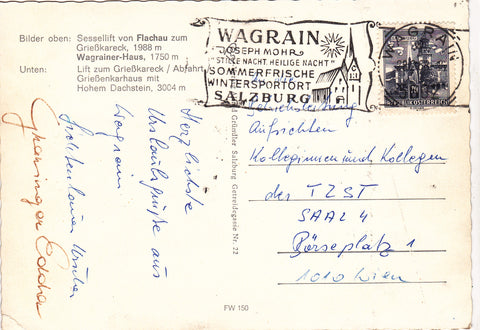 Bilder oben: Sessellift von Flachau zum
Grießkareck, 1988 m
Wagrainer-Haus, 1750 m
Unten: Lift zum Grießkareck / Abfahrt
Grießenkarhaus mit
Hohem Dachstein, 3004 m
WAGRAIN
JOSEPH MOHR
"STILLE NACHT, HEILIGE NACHT"
SOMMERFRISCHE
WINTERSPORTORT
SALZBURG
WAGRAIN
REPUBLIK ÖSTERREICH
Herzlichste
Urlaubsgrüße aus
Wagrain
Gründler Salzburg Getreidegasse Nr. 22
Aufsichten
Kolleginnen und Kollegen
der TZST
SAAL 4
Börseplatz 1
1010 Wien
FW 150